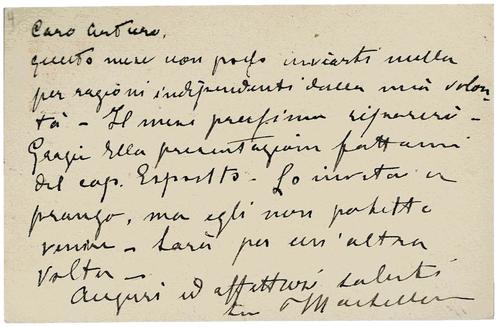 Caro Arturo,
questo mese non posso inviarti nulla
per ragioni indipendenti dalla mia volon-
tà - Il mese prossimo riparerò -
Grazie della presentazione fattami
del cap. Esposito - Lo invitai a
pranzo, ma egli non potette
venire - Sarà per un'altra
volta -
Auguri ed affettuosi saluti